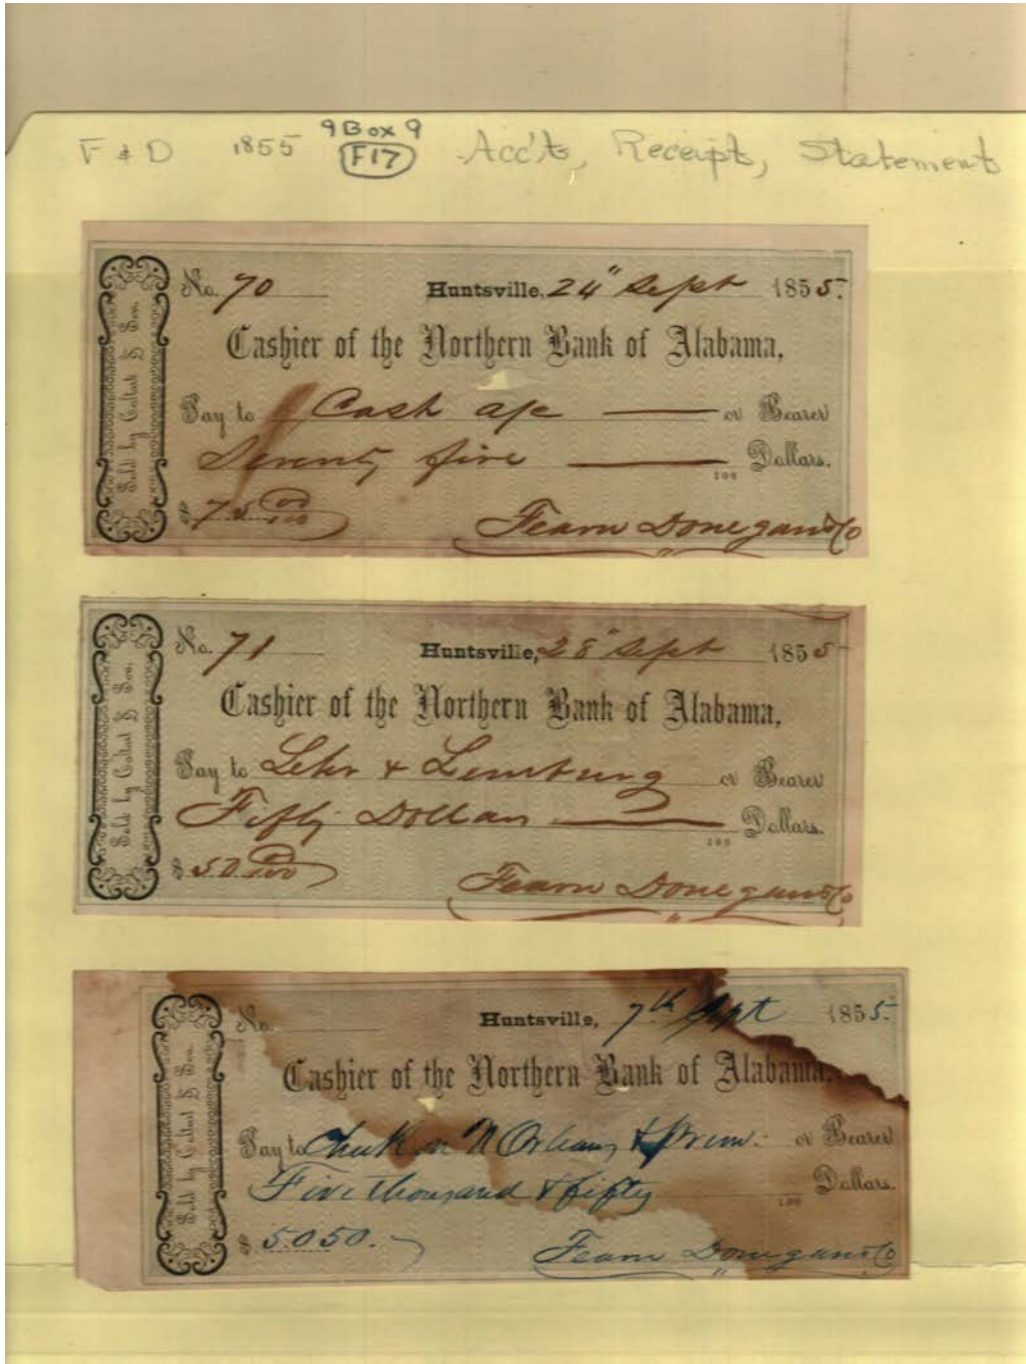 F & D 1855 9Box9 Acc'ts, Receipt, Statement
F17
Sold by Coltart & Son.
No. 70 Huntsville, 24" Sept 1855.
Cashier of the Northern Bank of Alabama,
Pay to Cash a/c or Bearer
Seventy five Dollars.
100
$ 75 00/100 Fearn Donegan & Co
Sold by Coltart & Son.
No. 71 Huntsville, 28" Sept 1855
Cashier of the Northern Bank of Alabama,
Pay to Lehr & or Bearer
Fifty Dollars Dollars.
100
$ 50 00/100 Fearn Donegan & Co
Sold by Coltart & Son.
No. Huntsville, 7th Sept 1855.
Cashier of the Northern Bank of Alabama,
Pay to Check on N Orleans & Prem. or Bearer
Five thousand & fifty Dollars.
100
$ 5050. Fearn Donegan & Co